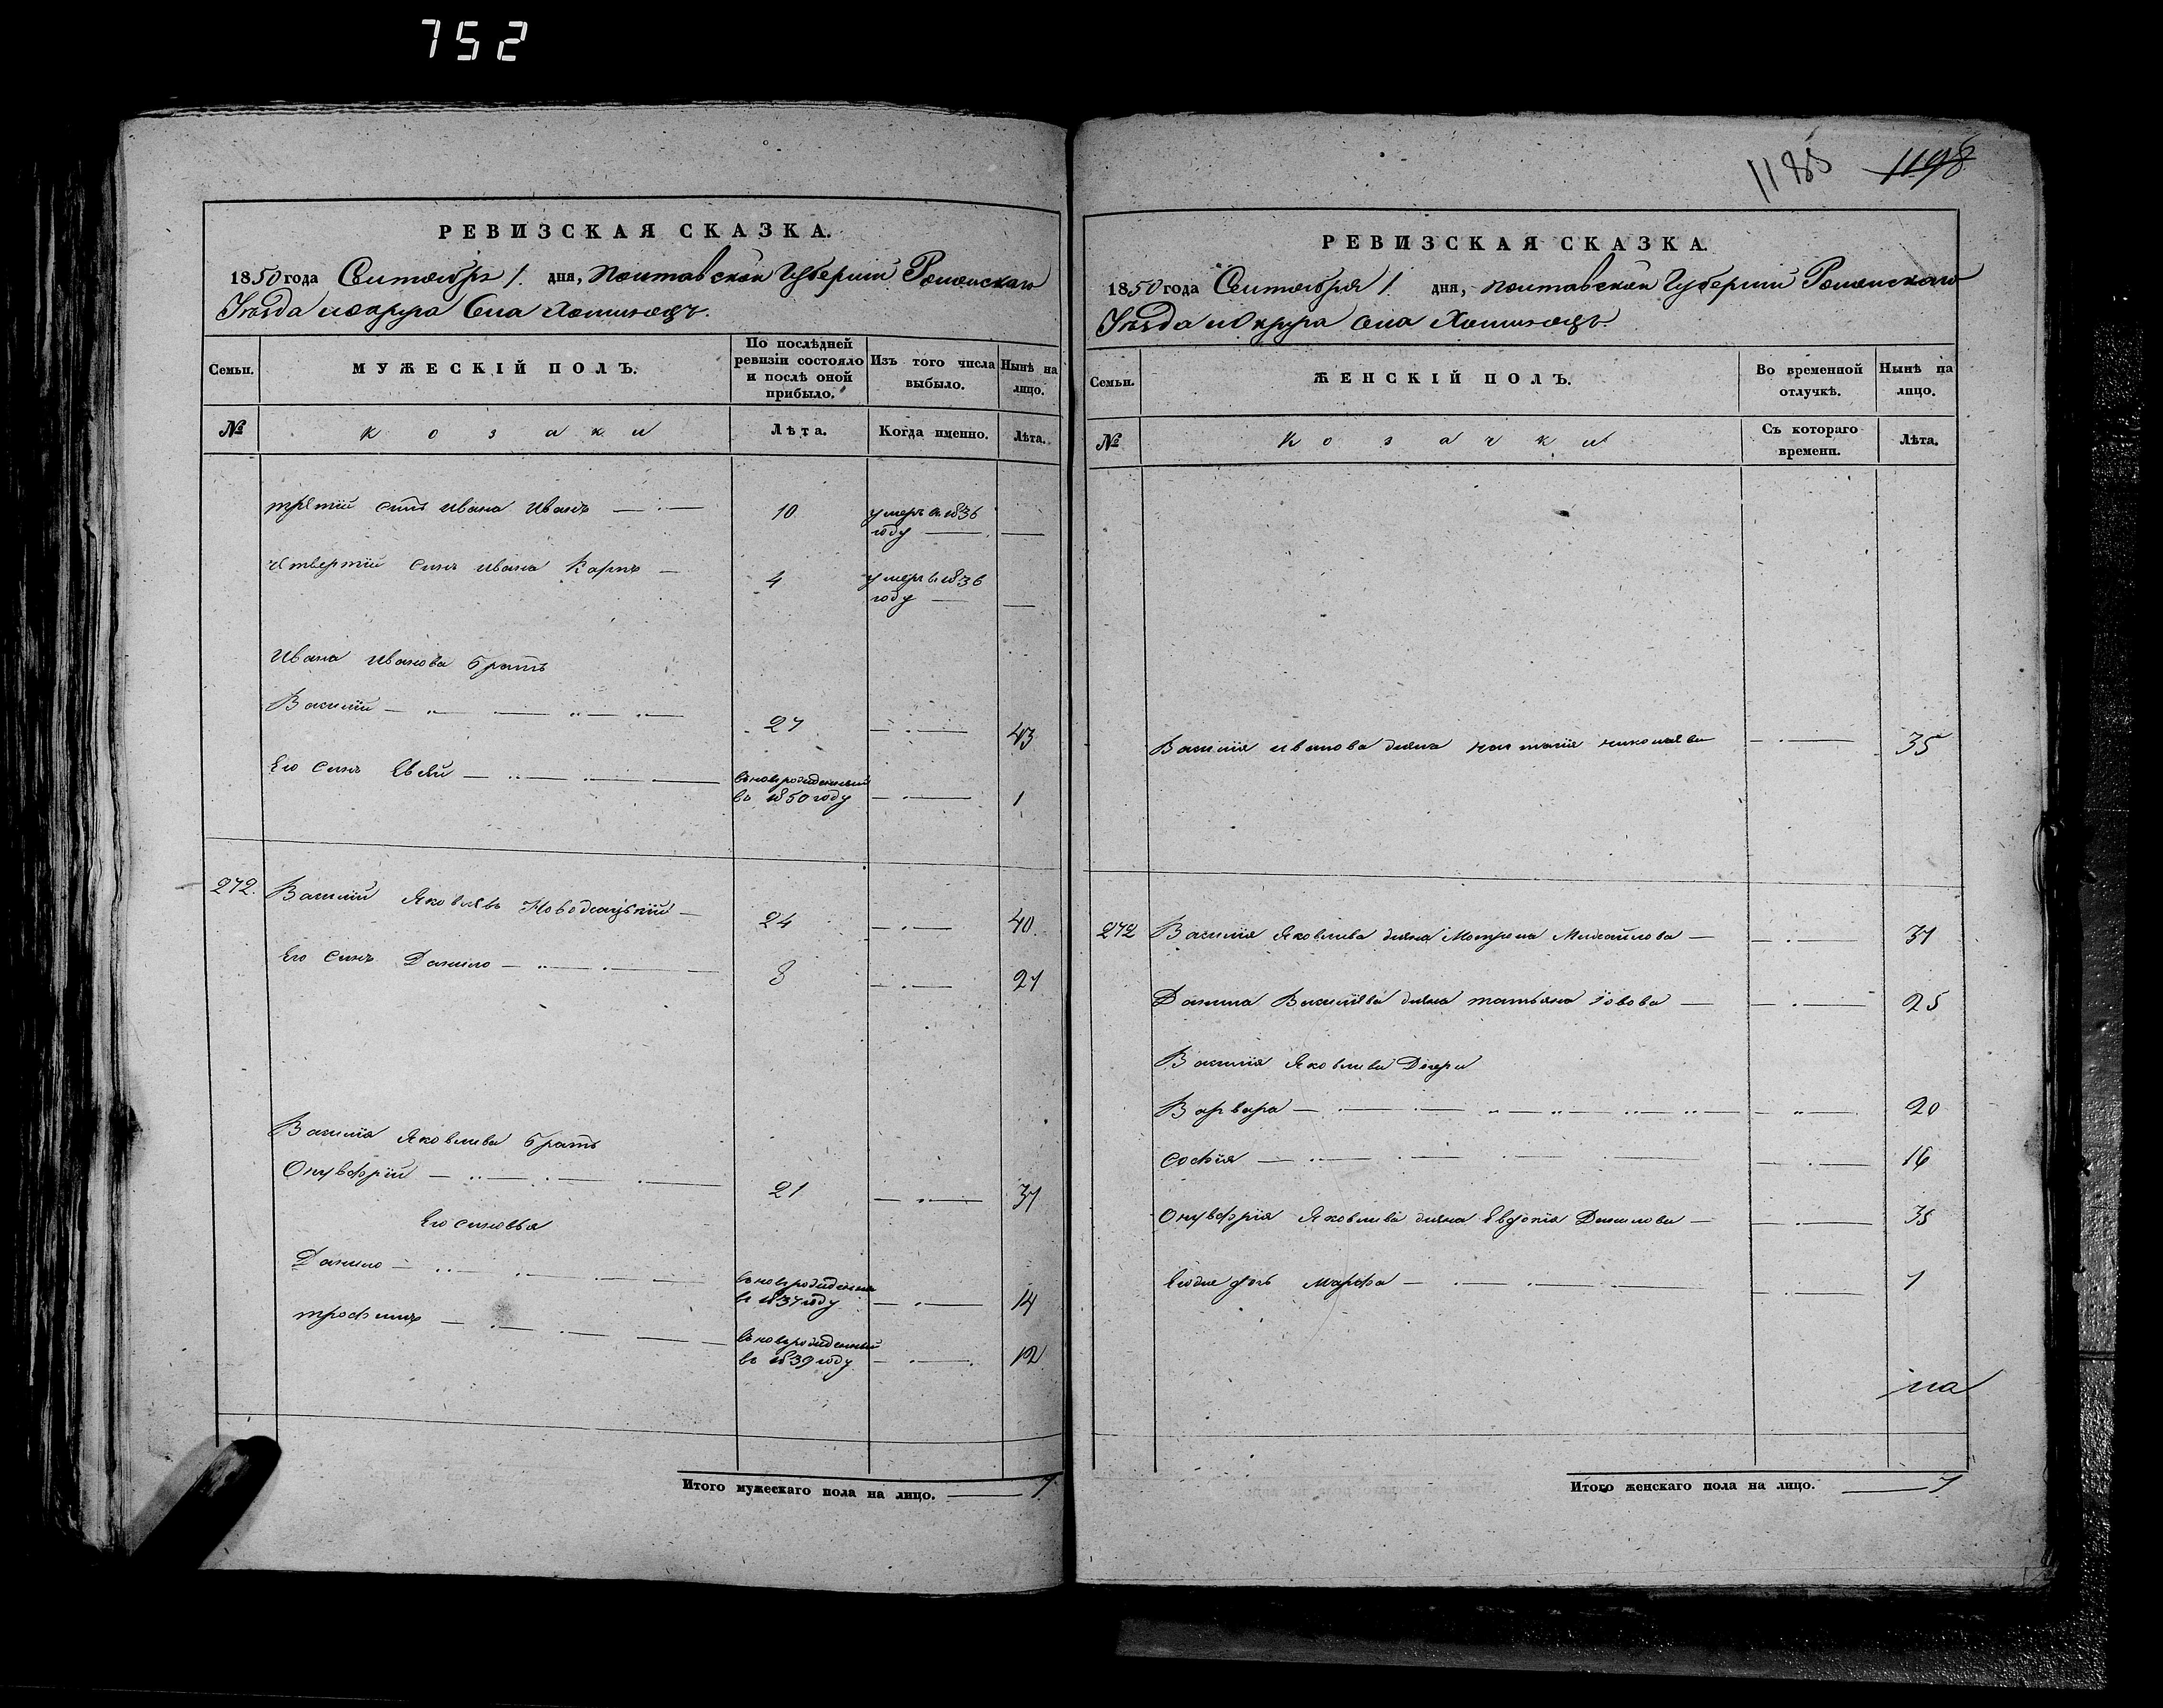 752
РЕВИЗСКАЯ СКАЗКА.
1850 года Сентября 1. дня, Полтавской Губернии Роменскаго
Уѣзда и округа Села Хоминець.
Семьи.
МУЖЕСКІЙ ПОЛЪ.
По послѣдней ревизіи состояло и послѣ оной прибыло.
Изъ того числа выбыло.
Нынѣ на лицо.
№
козаки
Лѣта.
Когда именно.
Лѣта.
третій синъ Ивана Иванъ 10 умеръ въ 1836
году
четвертій синъ Ивана Карпъ 4 умеръ въ 1836
году
Ивана Иванова братъ
Василій 27 43
Его синъ Евсей вновьрожденный
въ 1850 году 1
272. Василій Яковлевъ 24 40.
Его синъ Данило 8 24
Василія Яковлева братъ
Онуфрій 21 37
Его синовья
Данило вновьрожденный
въ 1837 году 14
трофимъ вновьрожденный
въ 1839 году 12
Итого мужескаго пола на лицо. 7.
1185 1198
РЕВИЗСКАЯ СКАЗКА.
1850 года Сентября 1. дня, Полтавской Губернии Роменскаго
Уѣзда и Округа села Хоминець.
Семьи.
ЖЕНСКІЙ ПОЛЪ.
Во временной отлучкѣ.
Нынѣ на лицо.
№
козачки
Съ котораго времени.
Лѣта.
Василія Иванова жена Наталія николаева 35
272 Василія Яковлева жена Мотрона Михайлова 37
Данила Василіева жена татьяна Іовова 25
Василія Яковлева Дочери
Варвара 20
софія 16
Онуфрія Яковлева жена Евдокія Данилова 35
Егоже дочь Марфа 1
Итого женскаго пола на лицо. 7